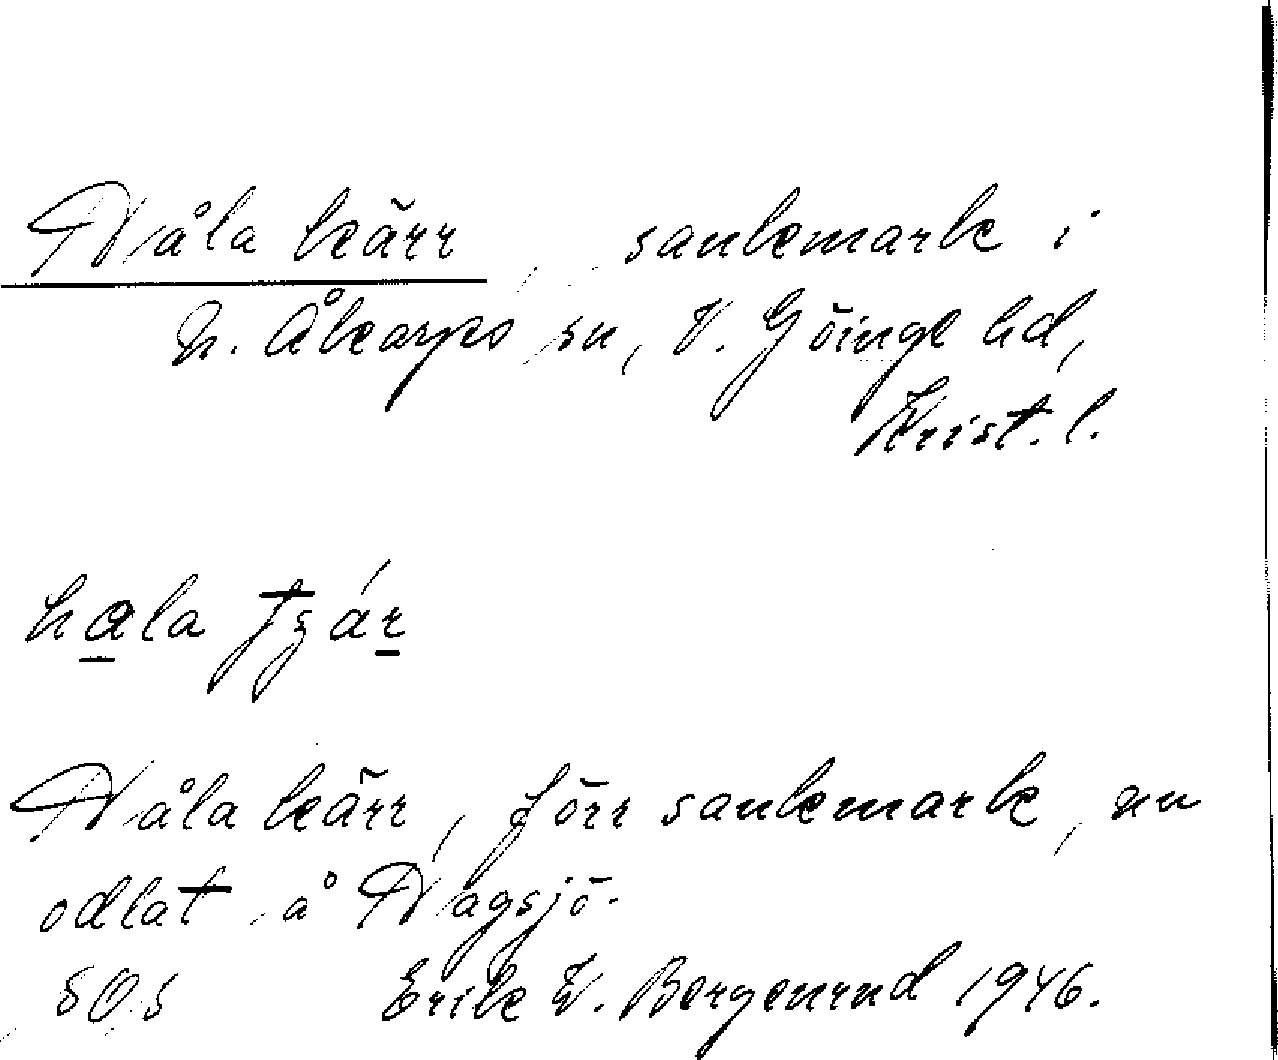 Håla kärr, sankmark i
N. Åkarps sn, V. Göinge hd,
Krist. l.
hala tʒär
Håla kärr, förr sankmark, nu
odlat å Hagsjö.
SOS Erik W. Bergenrud 1946.